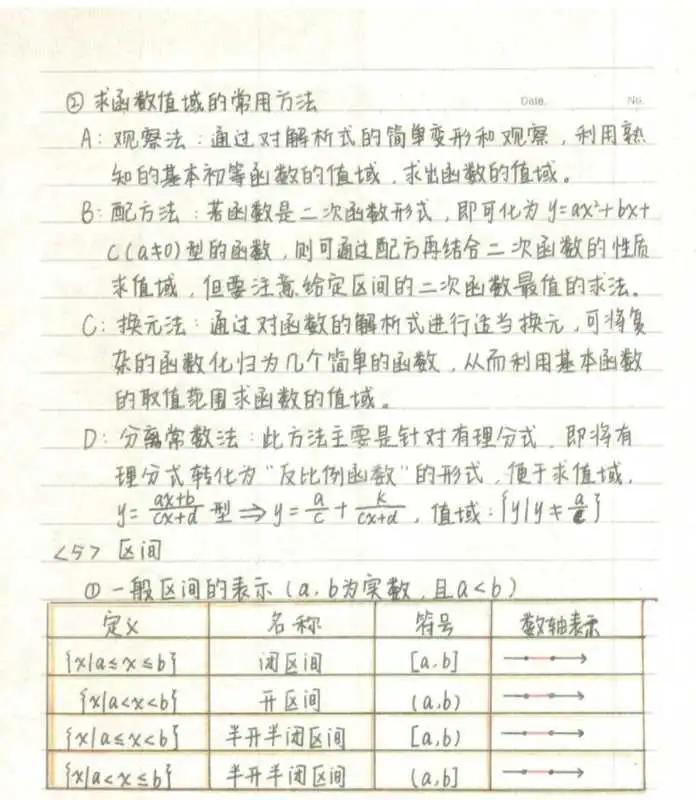 Date. No.
② 求函数值域的常用方法
A：观察法：通过对解析式的简单变形和观察，利用熟
知的基本初等函数的值域，求出函数的值域。
B：配方法：若函数是二次函数形式，即可化为 y=ax²+bx+
c(a≠0)型的函数，则可通过配方再结合二次函数的性质
求值域，但要注意给定区间的二次函数最值的求法。
C：换元法：通过对函数的解析式进行适当换元，可将复
杂的函数化归为几个简单的函数，从而利用基本函数
的取值范围求函数的值域。
D：分离常数法：此方法主要是针对有理分式，即将有
理分式转化为“反比例函数”的形式，便于求值域，
y=(ax+b)/(cx+d) 型 ⇒ y=a/c + k/(cx+d)，值域：{y|y≠a/c}
<5> 区间
① 一般区间的表示（a，b为实数，且a<b）
定义 名称 符号 数轴表示
{x|a≤x≤b} 闭区间 [a,b]
{x|a<x<b} 开区间 (a,b)
{x|a≤x<b} 半开半闭区间 [a,b)
{x|a<x≤b} 半开半闭区间 (a,b]